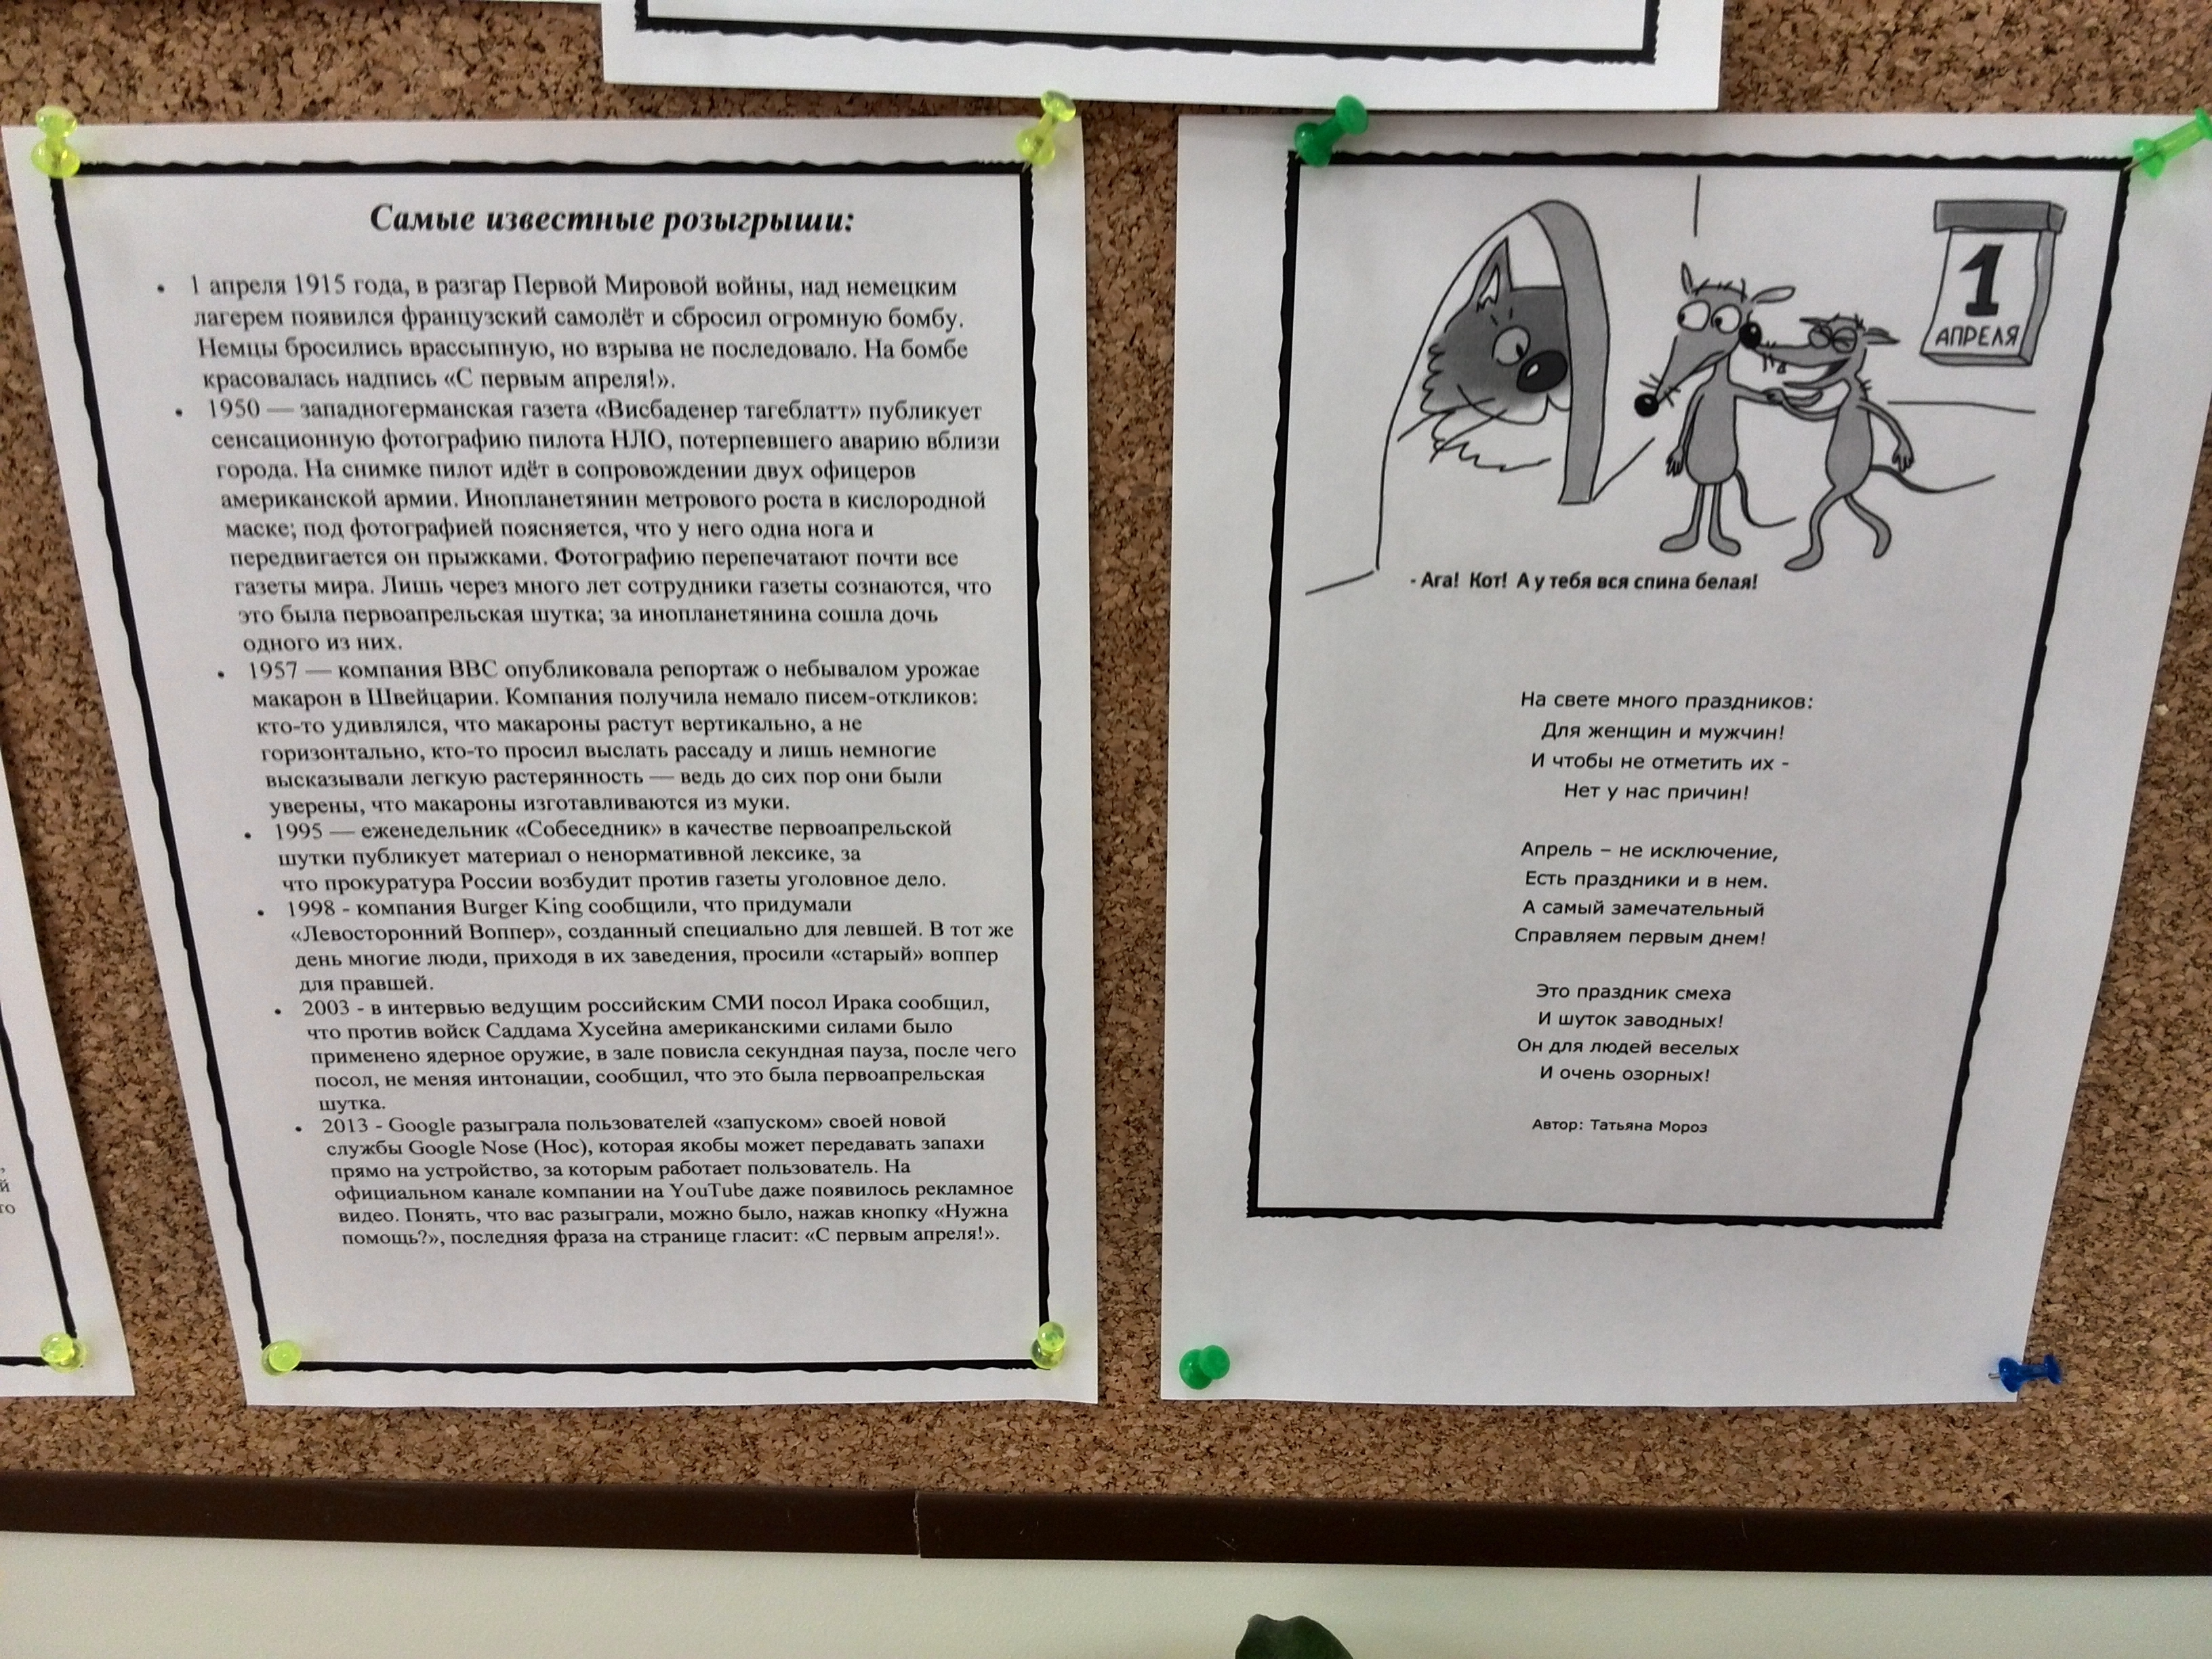 Самые известные розыгрыши:
• 1 апреля 1915 года, в разгар Первой Мировой войны, над немецким
лагерем появился французский самолёт и сбросил огромную бомбу.
Немцы бросились врассыпную, но взрыва не последовало. На бомбе
красовалась надпись «С первым апреля!».
• 1950 — западногерманская газета «Висбаденер тагеблатт» публикует
сенсационную фотографию пилота НЛО, потерпевшего аварию вблизи
города. На снимке пилот идёт в сопровождении двух офицеров
американской армии. Инопланетянин метрового роста в кислородной
маске; под фотографией поясняется, что у него одна нога и
передвигается он прыжками. Фотографию перепечатают почти все
газеты мира. Лишь через много лет сотрудники газеты сознаются, что
это была первоапрельская шутка; за инопланетянина сошла дочь
одного из них.
• 1957 — компания BBC опубликовала репортаж о небывалом урожае
макарон в Швейцарии. Компания получила немало писем-откликов:
кто-то удивлялся, что макароны растут вертикально, а не
горизонтально, кто-то просил выслать рассаду и лишь немногие
высказывали легкую растерянность — ведь до сих пор они были
уверены, что макароны изготавливаются из муки.
• 1995 — еженедельник «Собеседник» в качестве первоапрельской
шутки публикует материал о ненормативной лексике, за
что прокуратура России возбудит против газеты уголовное дело.
• 1998 - компания Burger King сообщили, что придумали
«Левосторонний Воппер», созданный специально для левшей. В тот же
день многие люди, приходя в их заведения, просили «старый» воппер
для правшей.
• 2003 - в интервью ведущим российским СМИ посол Ирака сообщил,
что против войск Саддама Хусейна американскими силами было
применено ядерное оружие, в зале повисла секундная пауза, после чего
посол, не меняя интонации, сообщил, что это была первоапрельская
шутка.
• 2013 - Google разыграла пользователей «запуском» своей новой
службы Google Nose (Нос), которая якобы может передавать запахи
прямо на устройство, за которым работает пользователь. На
официальном канале компании на YouTube даже появилось рекламное
видео. Понять, что вас разыграли, можно было, нажав кнопку «Нужна
помощь?», последняя фраза на странице гласит: «С первым апреля!».
1
АПРЕЛЯ
- Ага! Кот! А у тебя вся спина белая!
На свете много праздников:
Для женщин и мужчин!
И чтобы не отметить их -
Нет у нас причин!
Апрель – не исключение,
Есть праздники и в нем.
А самый замечательный
Справляем первым днем!
Это праздник смеха
И шуток заводных!
Он для людей веселых
И очень озорных!
Автор: Татьяна Мороз